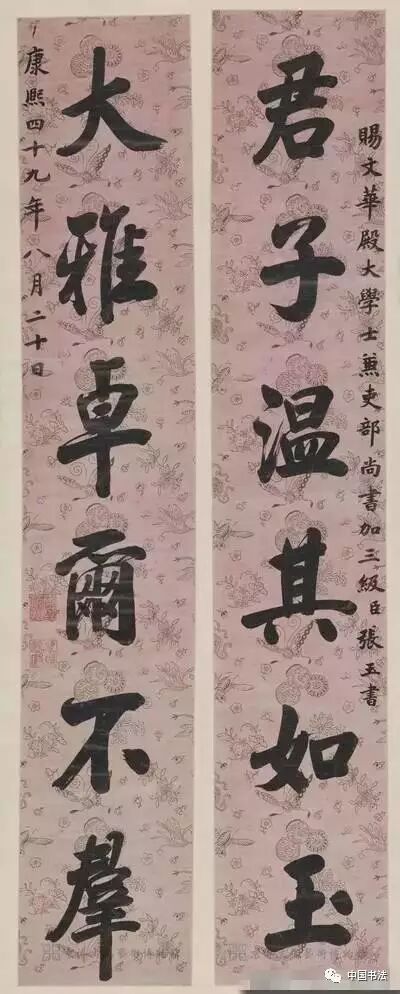 賜文華殿大學士兼吏部尚書加三級臣張玉書
君子溫其如玉
大雅卓爾不羣
康熙四十九年八月二十日
中国书法